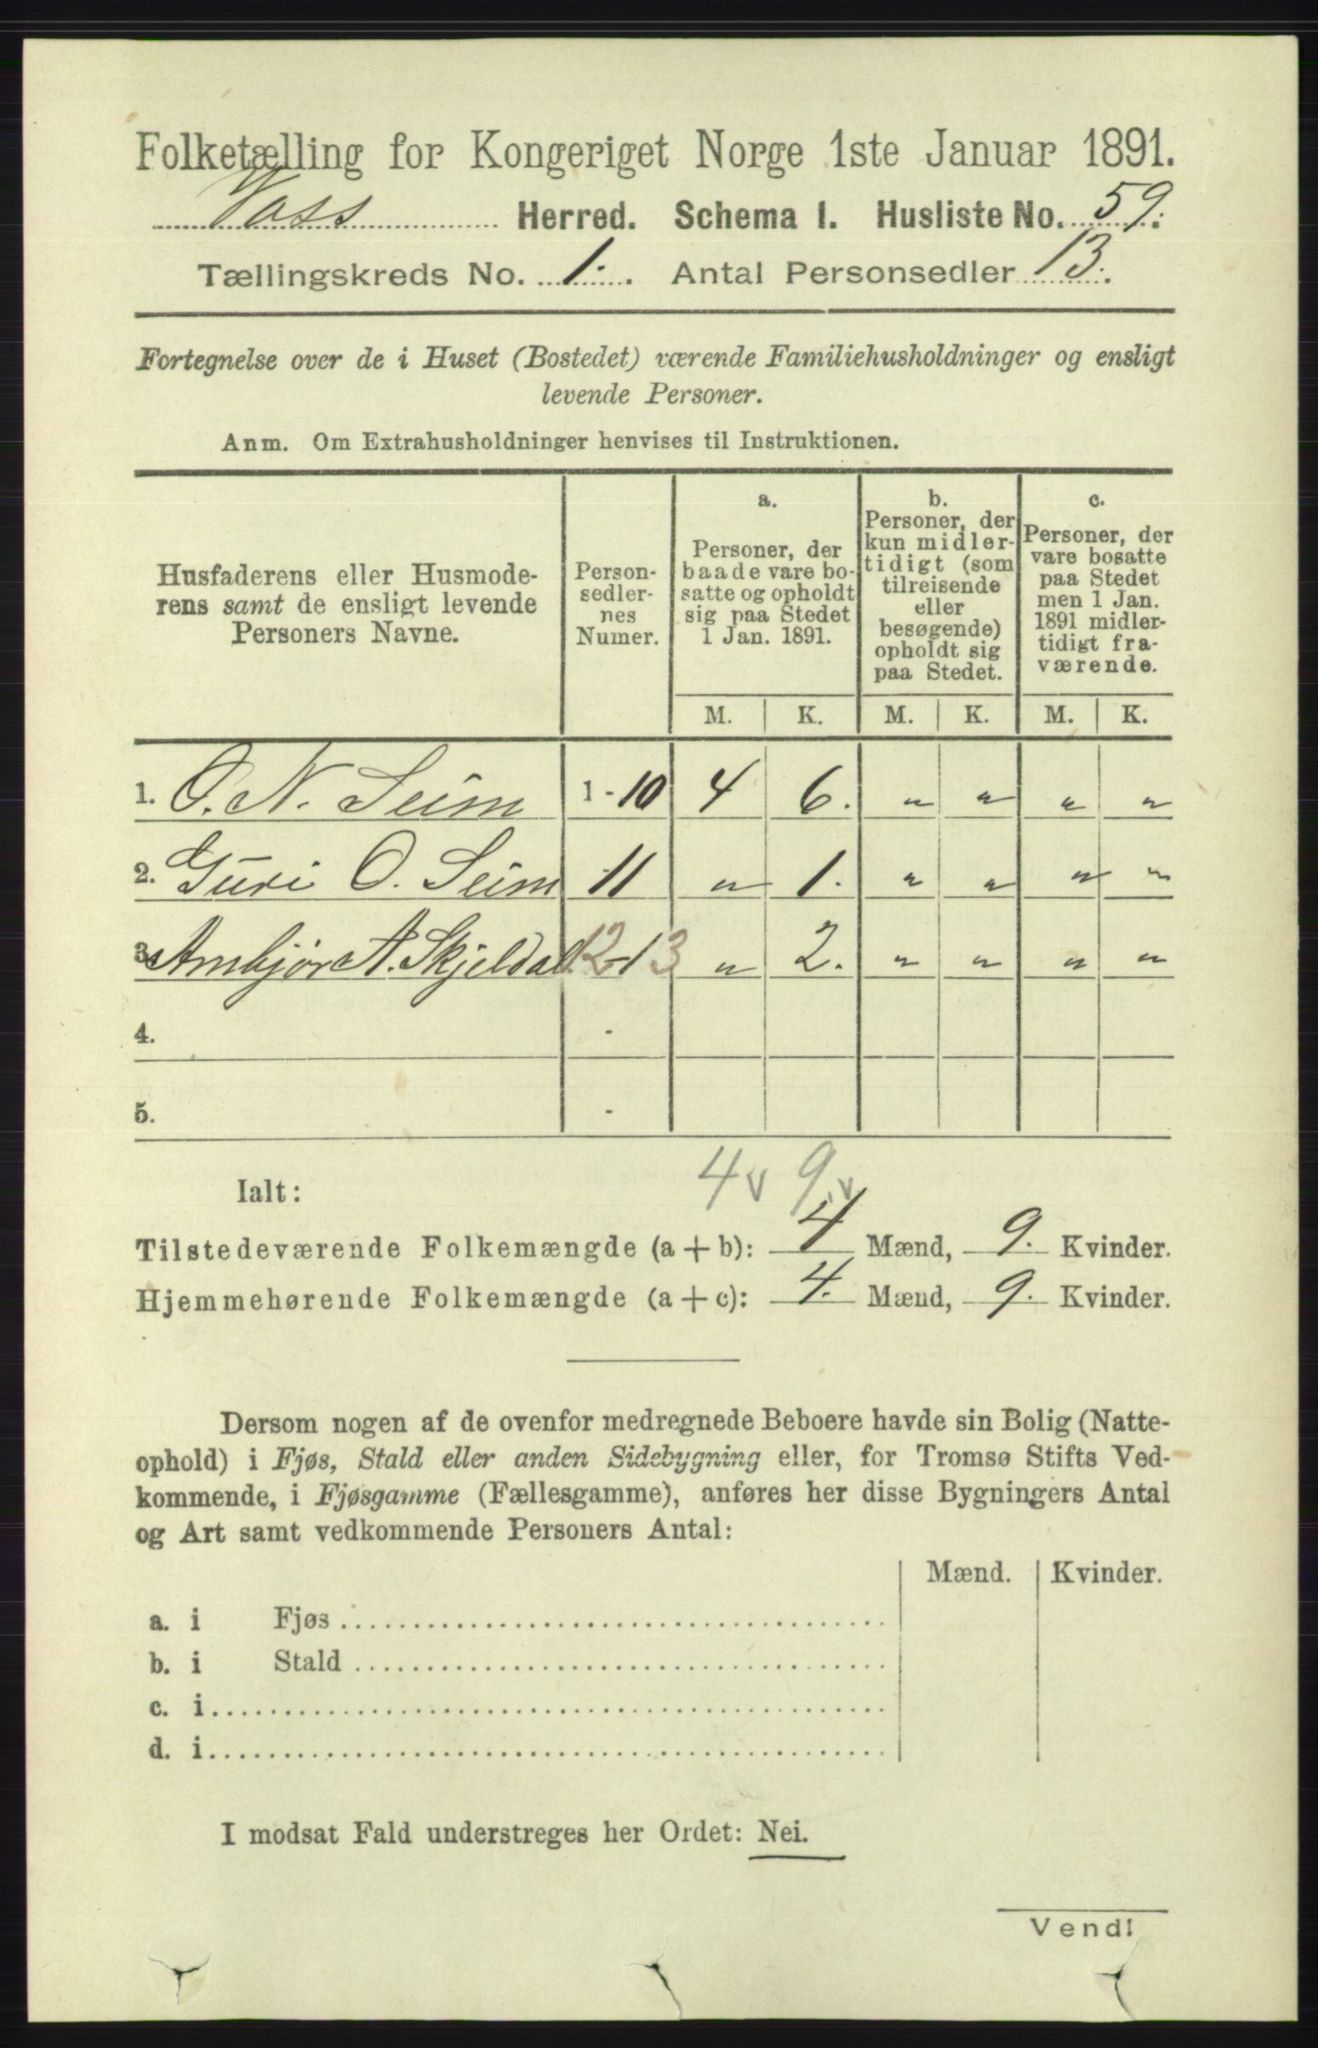 Folketælling for Kongeriget Norge 1ste Januar 1891.
Voss Herred. Schema I. Husliste No. 59.
Tællingskreds No. 1. Antal Personsedler 13.
Fortegnelse over de i Huset (Bostedet) værende Familiehusholdninger og ensligt
levende Personer.
Anm. Om Extrahusholdninger henvises til Instruktionen.
Husfaderens eller Husmode-
rens samt de ensligt levende
Personers Navne.
Person-
sedler-
nes
Numer.
a.
Personer, der
baade vare bo-
satte og opholdt
sig paa Stedet
1 Jan. 1891.
b.
Personer, der
kun midler-
tidigt (som
tilreisende
eller
besøgende)
opholdt sig
paa Stedet.
c.
Personer, der
vare bosatte
paa Stedet
men 1 Jan.
1891 midler-
tidigt fra-
værende.
M. K. M. K. M. K.
1. O. N. Seim 1-10 4 6. " " " "
2. Guri O. Seim 11 " 1. " " " "
3. Ambjør A. Skjeldal. 12-13 " 2. " " " "
4. -
5. -
4 v 9 v
Ialt:
Tilstedeværende Folkemængde (a + b): 4 Mænd, 9. Kvinder.
Hjemmehørende Folkemængde (a + c): 4. Mænd, 9. Kvinder.
Dersom nogen af de ovenfor medregnede Beboere havde sin Bolig (Natte-
ophold) i Fjøs, Stald eller anden Sidebygning eller, for Tromsø Stifts Ved-
kommende, i Fjøsgamme (Fællesgamme), anføres her disse Bygningers Antal
og Art samt vedkommende Personers Antal:
Mænd. Kvinder.
a. i Fjøs
b. i Stald
c. i
d. i
I modsat Fald understreges her Ordet: Nei.
Vend!